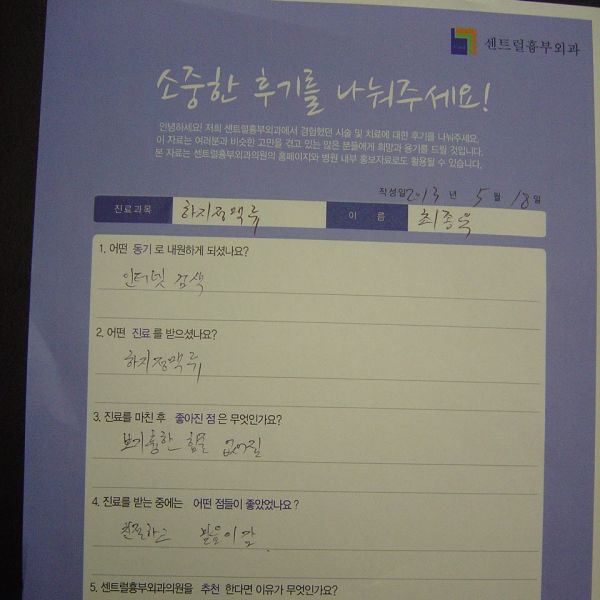 센트럴흉부외과
소중한 후기를 나눠주세요!
안녕하세요! 저희 센트럴흉부외과에서 경험했던 시술 및 치료에 대한 후기를 나눠주세요.
이 자료는 여러분과 비슷한 고민을 겪고 있는 많은 분들에게 희망과 용기를 드릴 것입니다.
본 자료는 센트럴흉부외과의원의 홈페이지와 병원 내부 홍보자료로도 활용될 수 있습니다.
작성일 2013 년 5 월 18 일
진료과목 하지정맥류 이 름 최종욱
1. 어떤 동기 로 내원하게 되셨나요?
인터넷 검색
2. 어떤 진료 를 받으셨나요?
하지정맥류
3. 진료를 마친 후 좋아진 점 은 무엇인가요?
보기흉한 힘줄 없어짐
4. 진료를 받는 중에는 어떤 점들이 좋았었나요 ?
친절하고 믿음이 감.
5. 센트럴흉부외과의원을 추천 한다면 이유가 무엇인가요?